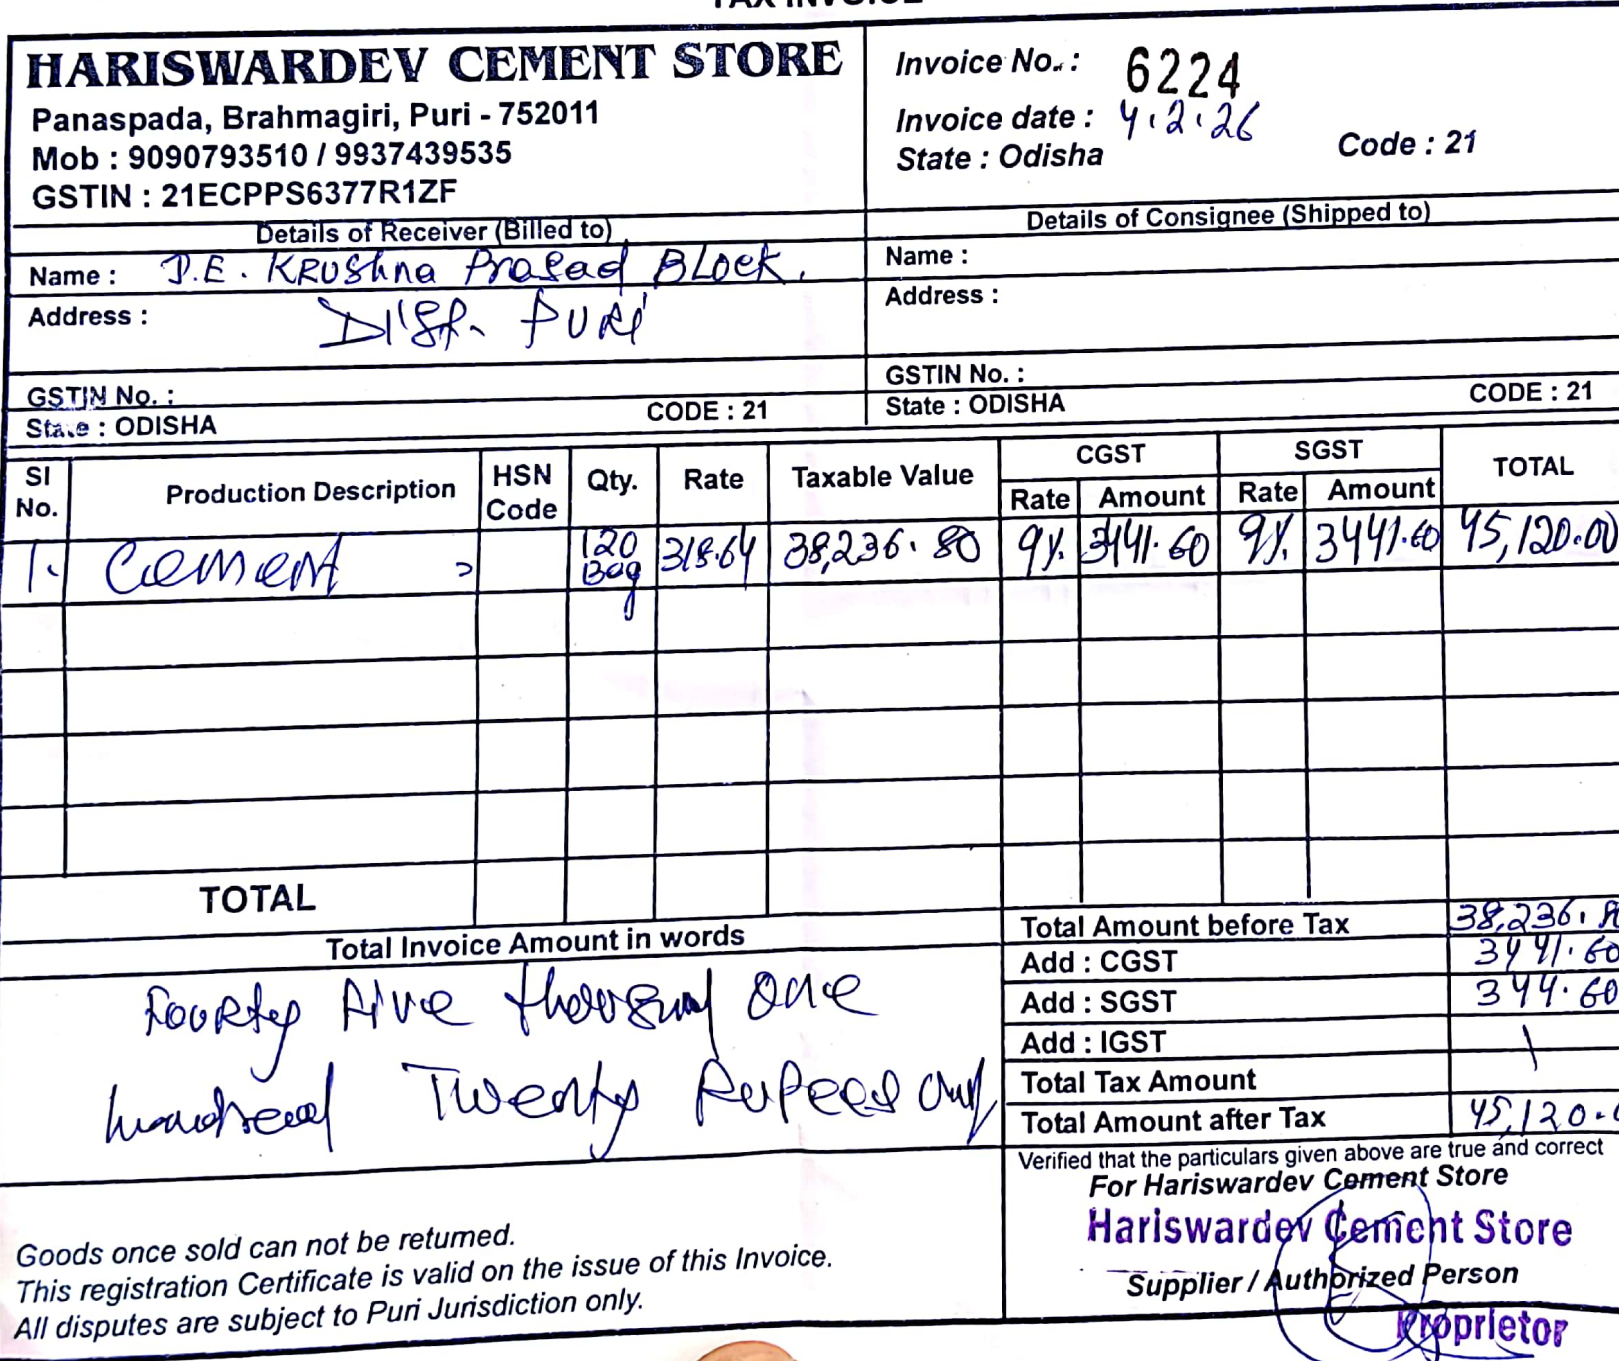 TAX INVOICE
HARISWARDEV CEMENT STORE
Panaspada, Brahmagiri, Puri - 752011
Mob : 9090793510 / 9937439535
GSTIN : 21ECPPS6377R1ZF
Invoice No. : 6224
Invoice date : 4.2.26
State : Odisha Code : 21
Details of Receiver (Billed to)
Name : J.E. Krushna Prasad Block.
Address : Dist. Puri
GSTIN No. :
State : ODISHA CODE : 21
Details of Consignee (Shipped to)
Name :
Address :
GSTIN No. :
State : ODISHA CODE : 21
SI No. Production Description HSN Code Qty. Rate Taxable Value CGST Rate Amount SGST Rate Amount TOTAL
1. Cement 120 Bag 318.64 38,236.80 9% 3441.60 9% 3441.60 45,120.00
TOTAL
Total Invoice Amount in words
Fourty Five thousand one
hundread Twenty Rupees only
Total Amount before Tax 38,236.8
Add : CGST 3441.60
Add : SGST 344.60
Add : IGST \
Total Tax Amount
Total Amount after Tax 45,120.0
Verified that the particulars given above are true and correct
For Hariswardev Cement Store
Hariswardev Cement Store
Supplier / Authorized Person
Proprietor
Goods once sold can not be returned.
This registration Certificate is valid on the issue of this Invoice.
All disputes are subject to Puri Jurisdiction only.